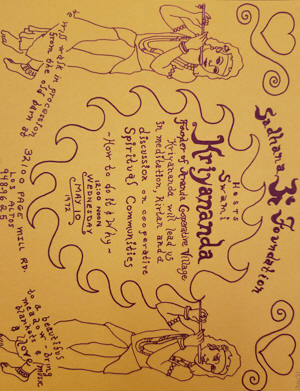 Sadhana ॐ Foundation
HOSTS
Swami
Kriyananda
Founder of Ananda Cooperative Village
Kriyananda will lead us
In meditation, Kirtan and a
discussion on cooperative
Spiritual Communities
- How to do it & Why -
12:00 NOON
WEDNESDAY
MAY 10
1972
we will walk in procession
from the old barn at
PAGE MILL RD.
LOS ALTOS
to a beautiful
bring
blankets & music
& love